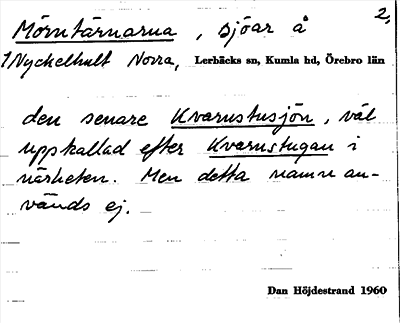 Mörntärnarna, sjöar å 2,
1 Nyckelhult Norra, Lerbäcks sn, Kumla hd, Örebro län
den senare Kvarnstusjön, väl
uppkallad efter Kvarnstugan i
närheten. Men detta namn an-
vänds ej.
Dan Höjdestrand 1960